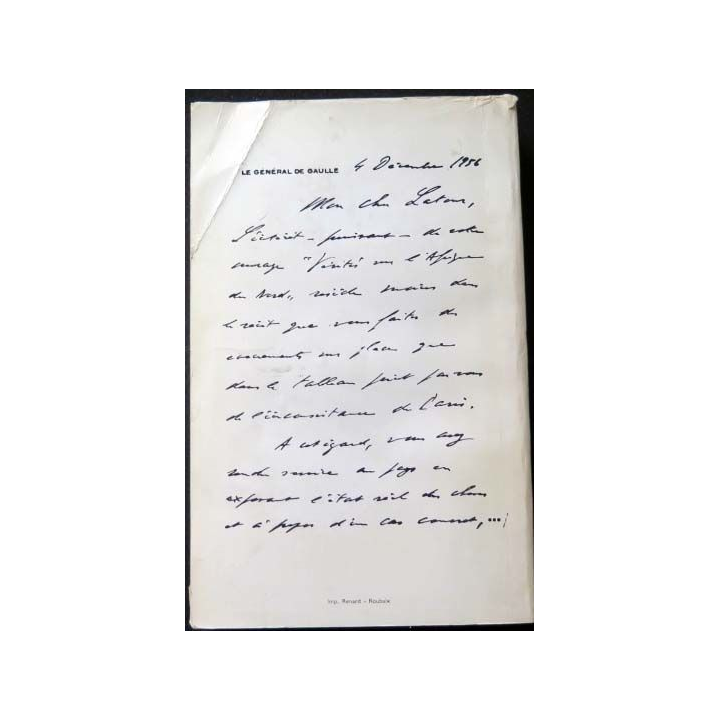 LE GÉNÉRAL DE GAULLE 4 Décembre 1956
Mon cher Latour,
L'intérêt - puissant - de cet
ouvrage "Vérités sur l'Afrique
du Nord", réside moins dans
le récit que vous faites des
évènements sur place que
dans le tableau peint par vous
de l'inconsistance de Paris.
A cet égard, vous avez
rendu service au pays en
exposant l'état réel des choses
et à propos d'un cas concret,...
Imp. Renard - Roubaix